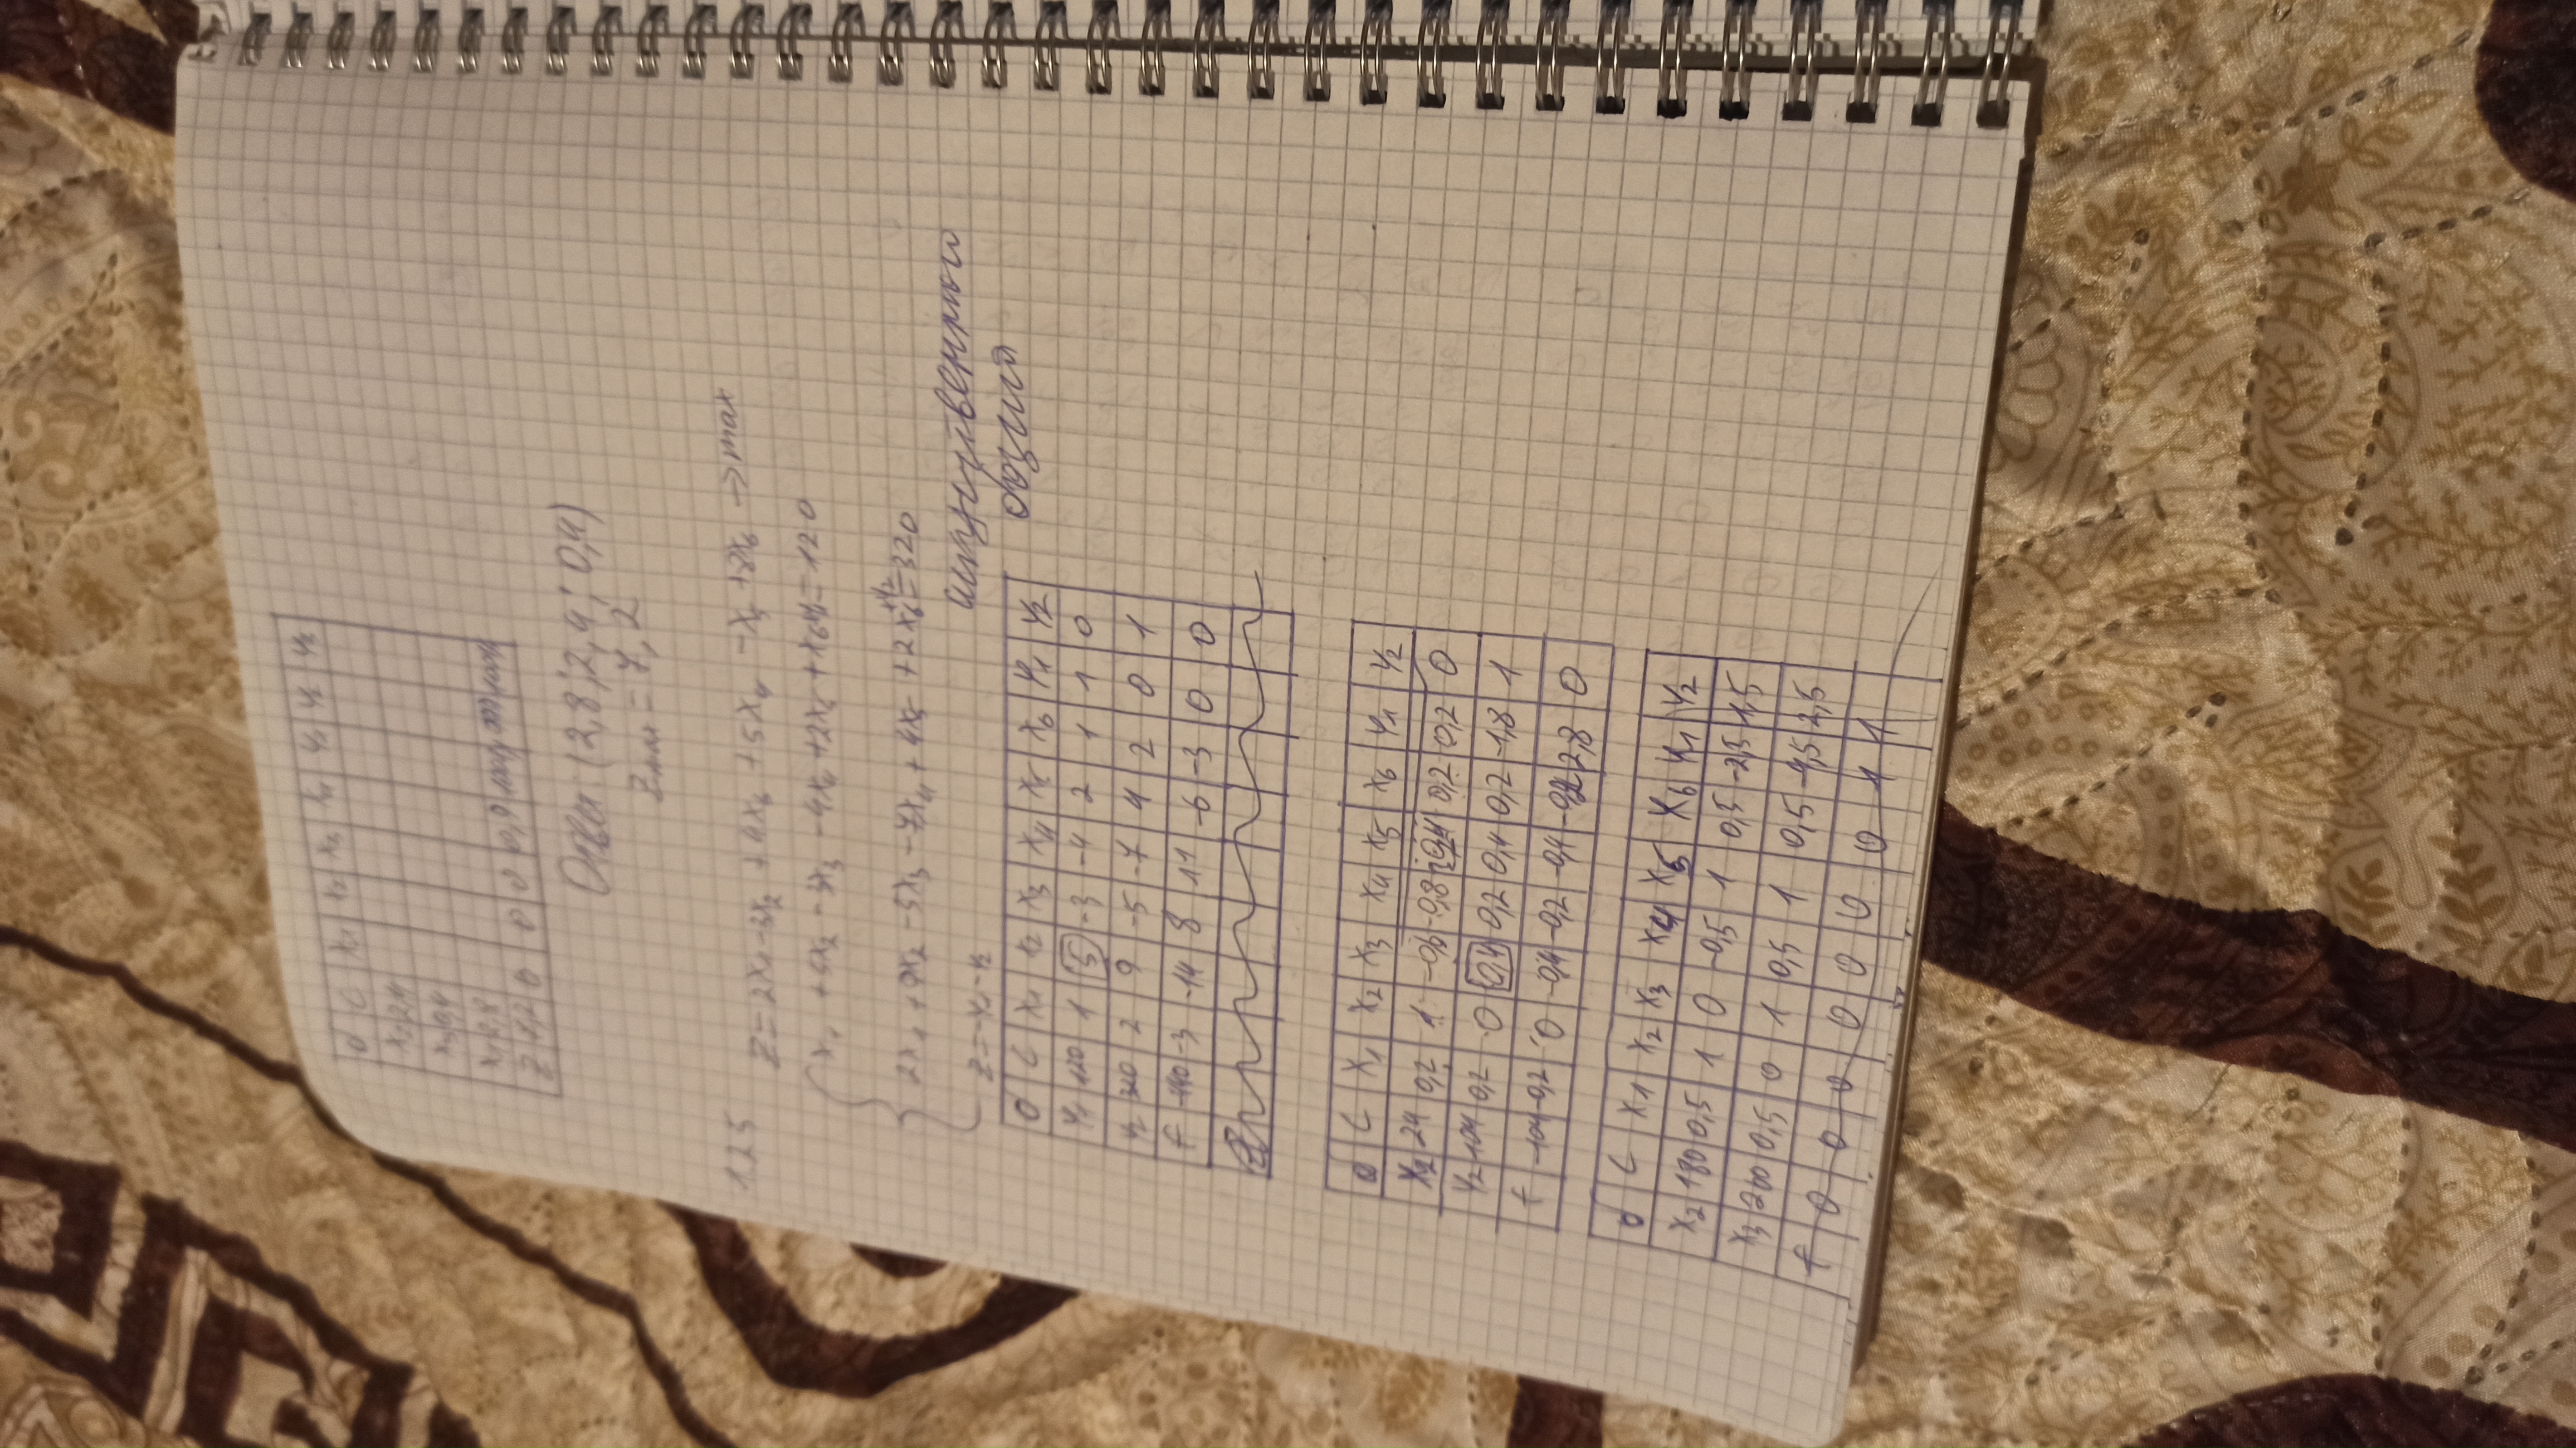 б C x₁ x₂ x₃ x₄ y₁ y₂ y₃
x₂ 2,4
x₃ 0,4
x₁ 2,8
Z 7,2 0 0 0 0,9
Ответ: (2,8; 2,4; 0,4)
Zmax = 7,2
1.25
Z = 2x₁ - 3x₂ + 4x₃ + 5x₄ - x₅ + 8x₆ → max
x₁ + 5x₂ - 3x₃ - 4x₄ + 2x₅ + x₆ + y₁ = 120
2x₁ + 9x₂ - 5x₃ - 7x₄ + 4x₅ + 2x₆ + y₂ = 320
Z = -y₁ - y₂
искуственного
базиса
б C x₁ x₂ x₃ x₄ x₅ x₆ y₁ y₂
y₁ 120 1 5 -3 -4 2 1 1 0
y₂ 320 2 9 -5 -7 4 2 0 1
F -440 -3 -14 8 11 -6 -3 0 0
Z
б C x₁ x₂ x₃ x₄ x₅ x₆ y₁ y₂
x₂ 24 0,2 1 -0,6 -0,8 0,4 0,2 0,2 0
y₂ 104 0,2 0 0,4 0,2 0,4 0,2 -1,8 1
F -104 -0,2 0 -0,4 -0,2 -0,4 -0,2 2,8 0
б C x₁ x₂ x₃ x₄ x₅ x₆ y₁ y₂
x₂ 180 0,5 1 0 -0,5 1 0,5 -2,5 1,5
x₃ 260 0,5 0 1 0,5 1 0,5 -4,5 2,5
F 0 0 0 0 0 0 0 1 1